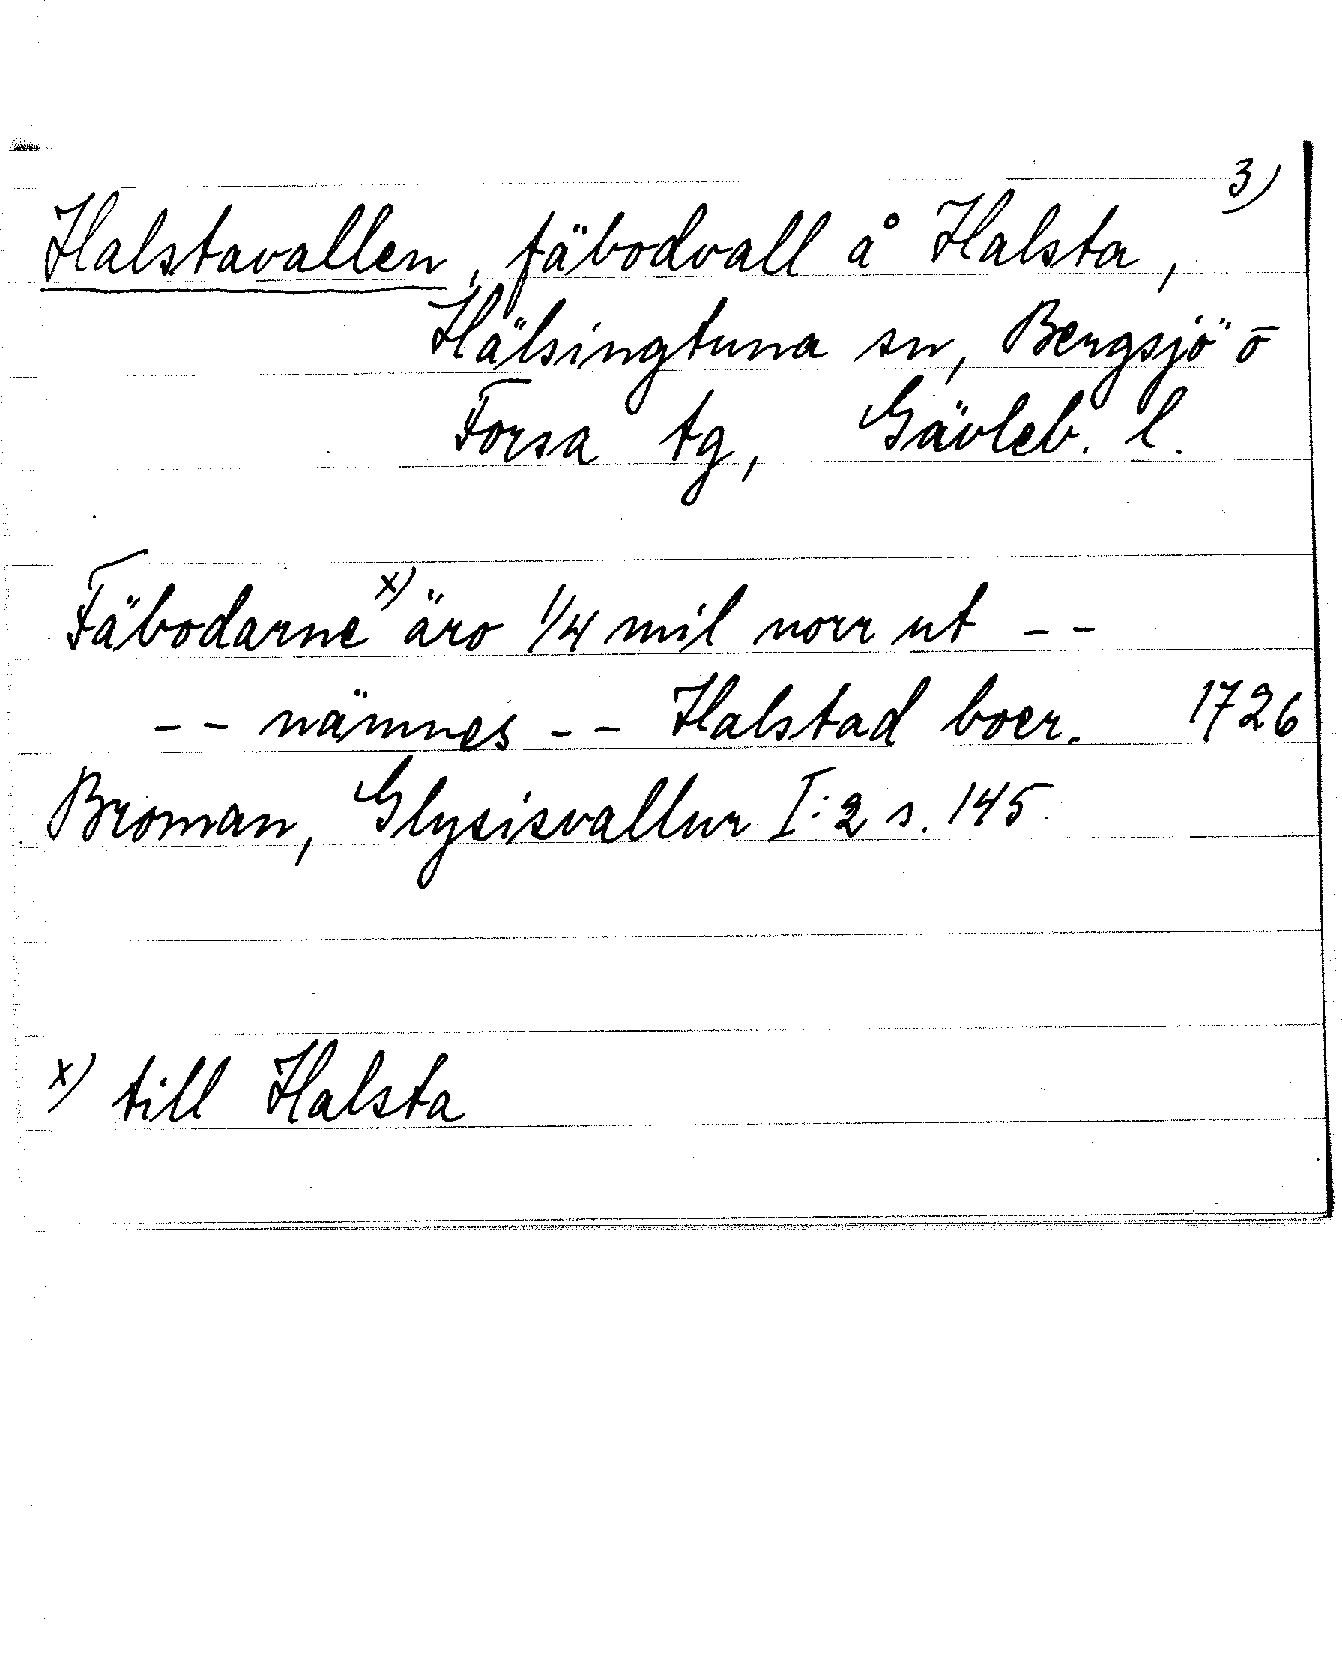 3)
Halstavallen, fäbodvall å Halsta,
Hälsingtuna sn, Bergsjö o
Forsa tg, Gävleb. l.
Fäbodarne x) äro 1/4 mil norr ut --
-- nämnes -- Halstad boer. 1726
Broman, Glysisvallur I:2 s. 145
x) till Halsta